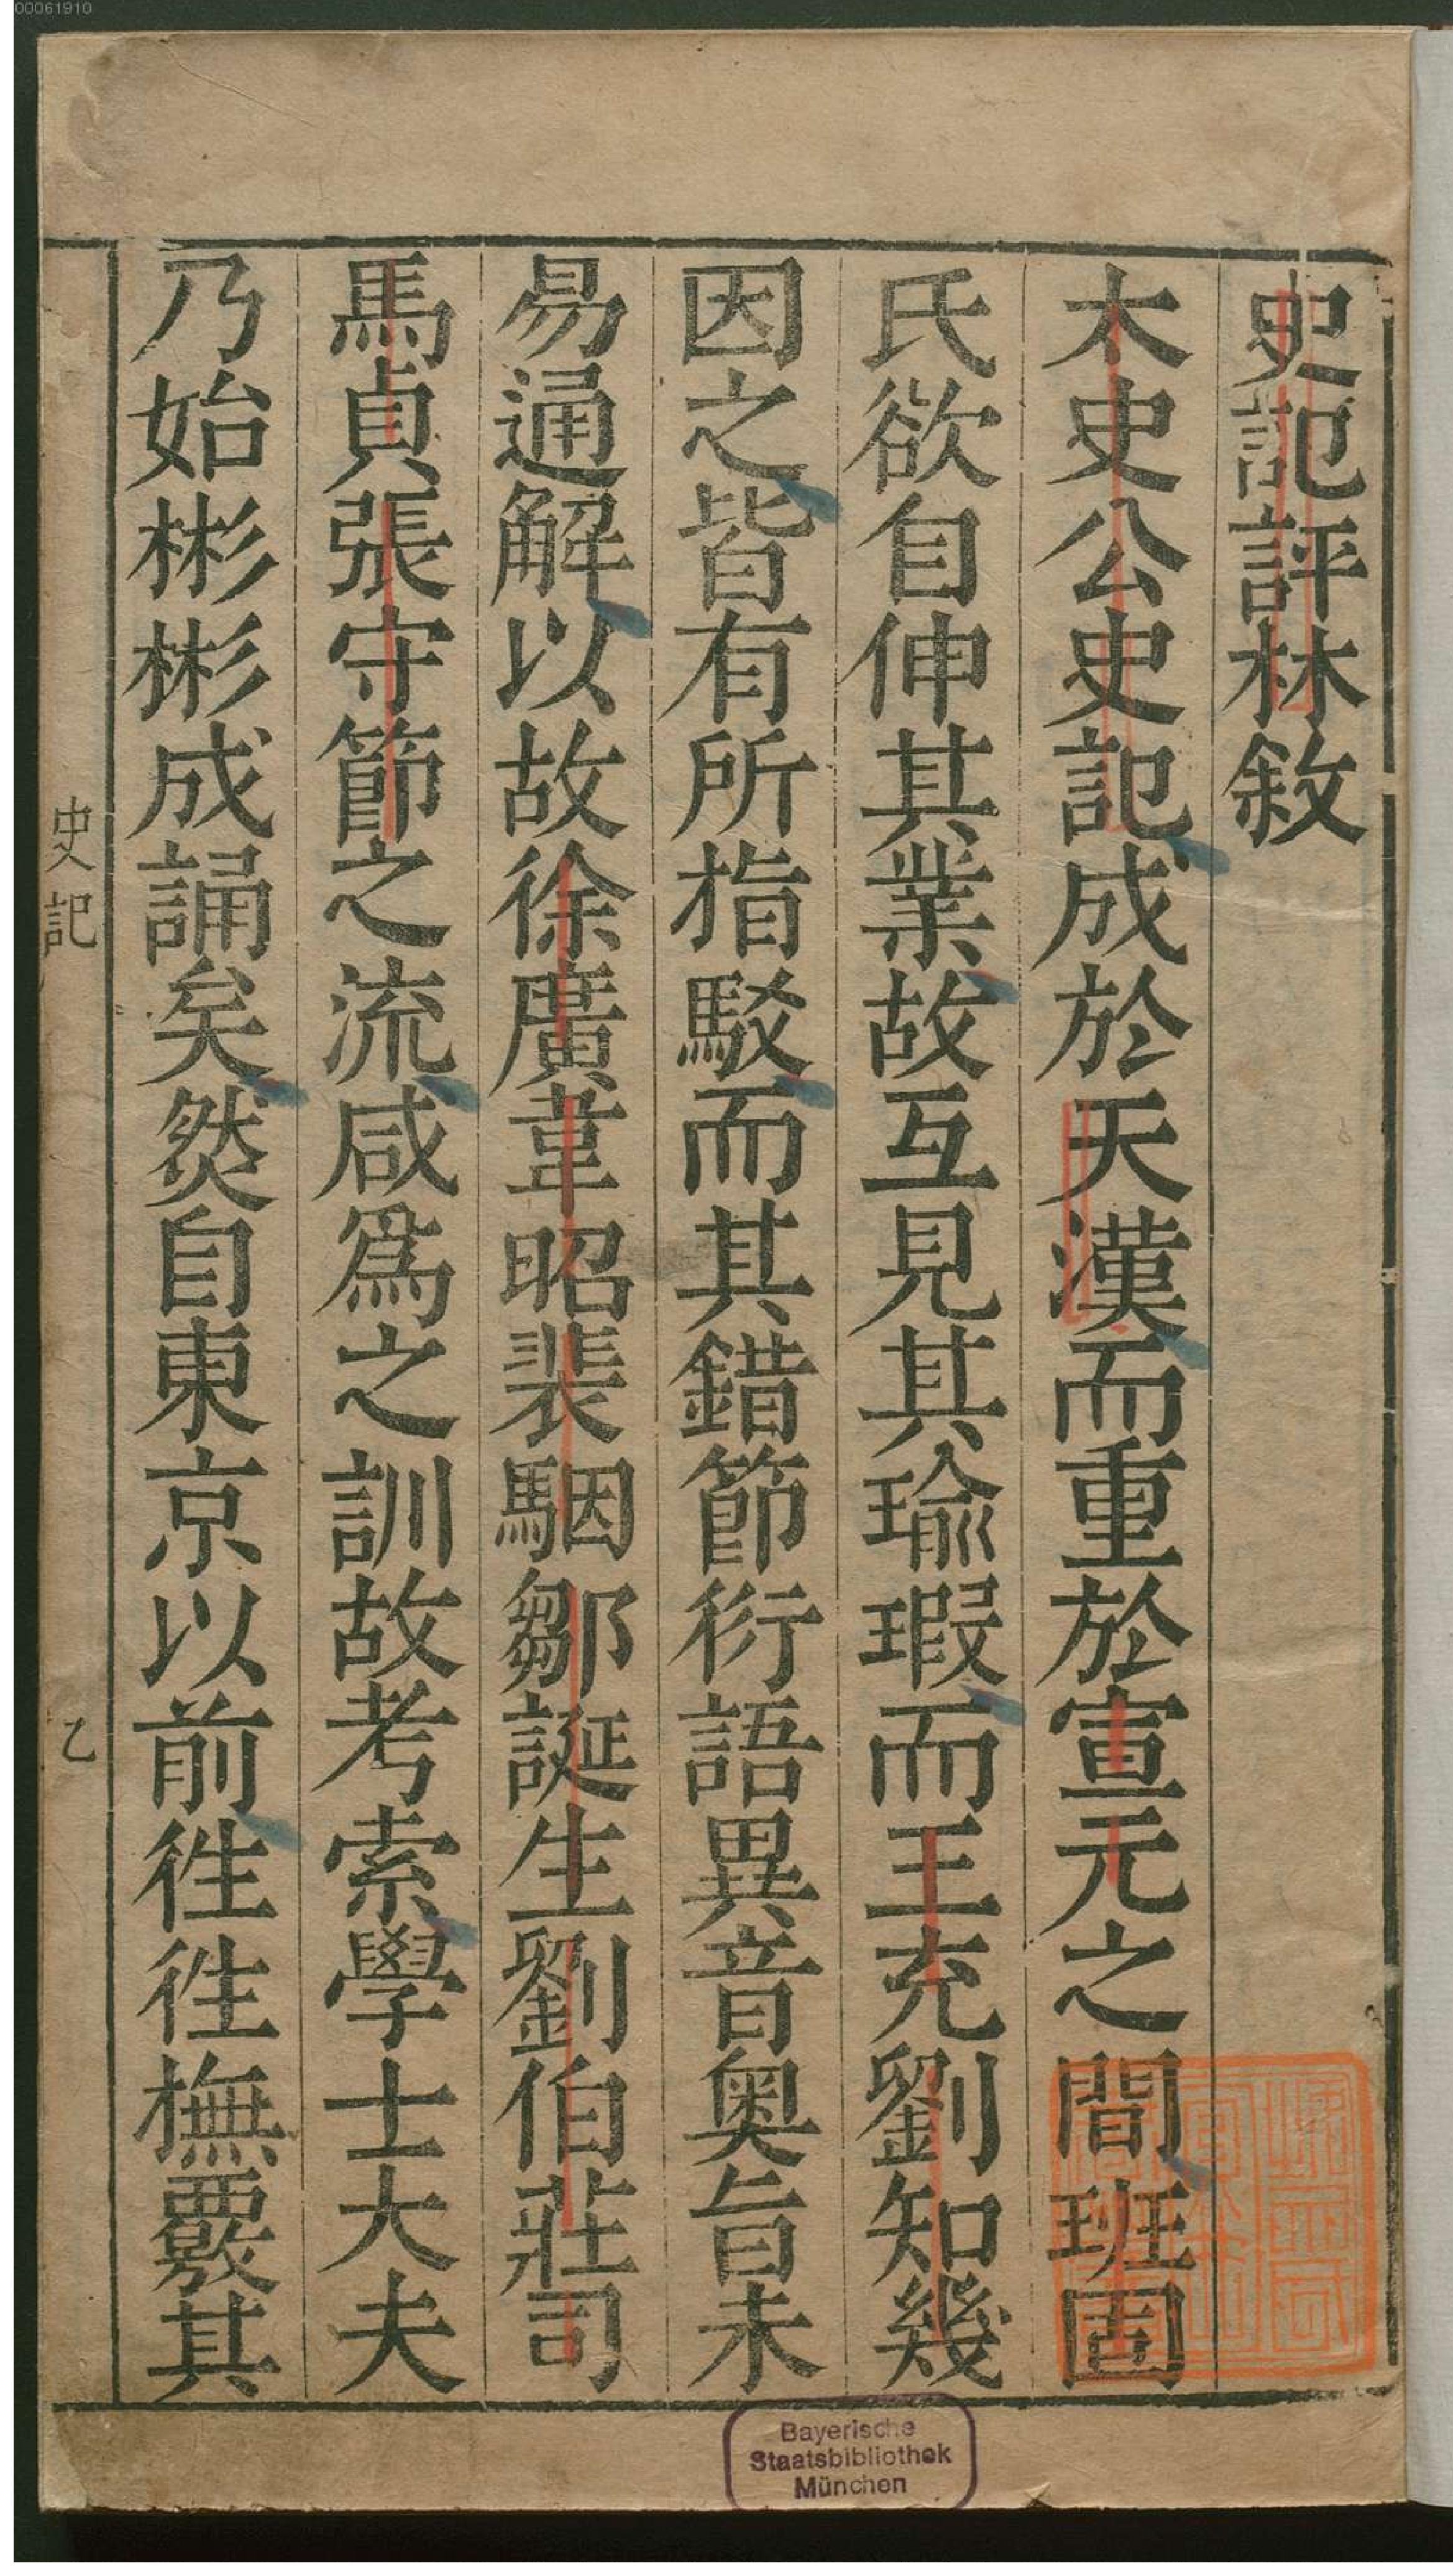 00061910
史記評林敘
太史公史記成於天漢而重於宣元之間班固
氏欲自伸其業故互見其瑜瑕而王充劉知幾
因之皆有所指駁而其錯節衍語異音奧旨未
易通解以故徐廣韋昭裴駰鄒誕生劉伯莊司
馬貞張守節之流咸爲之訓故考索學士大夫
乃始彬彬成誦矣然自東京以前徃徃橅覈其
史記
乙
Bayerische
Staatsbibliothek
München